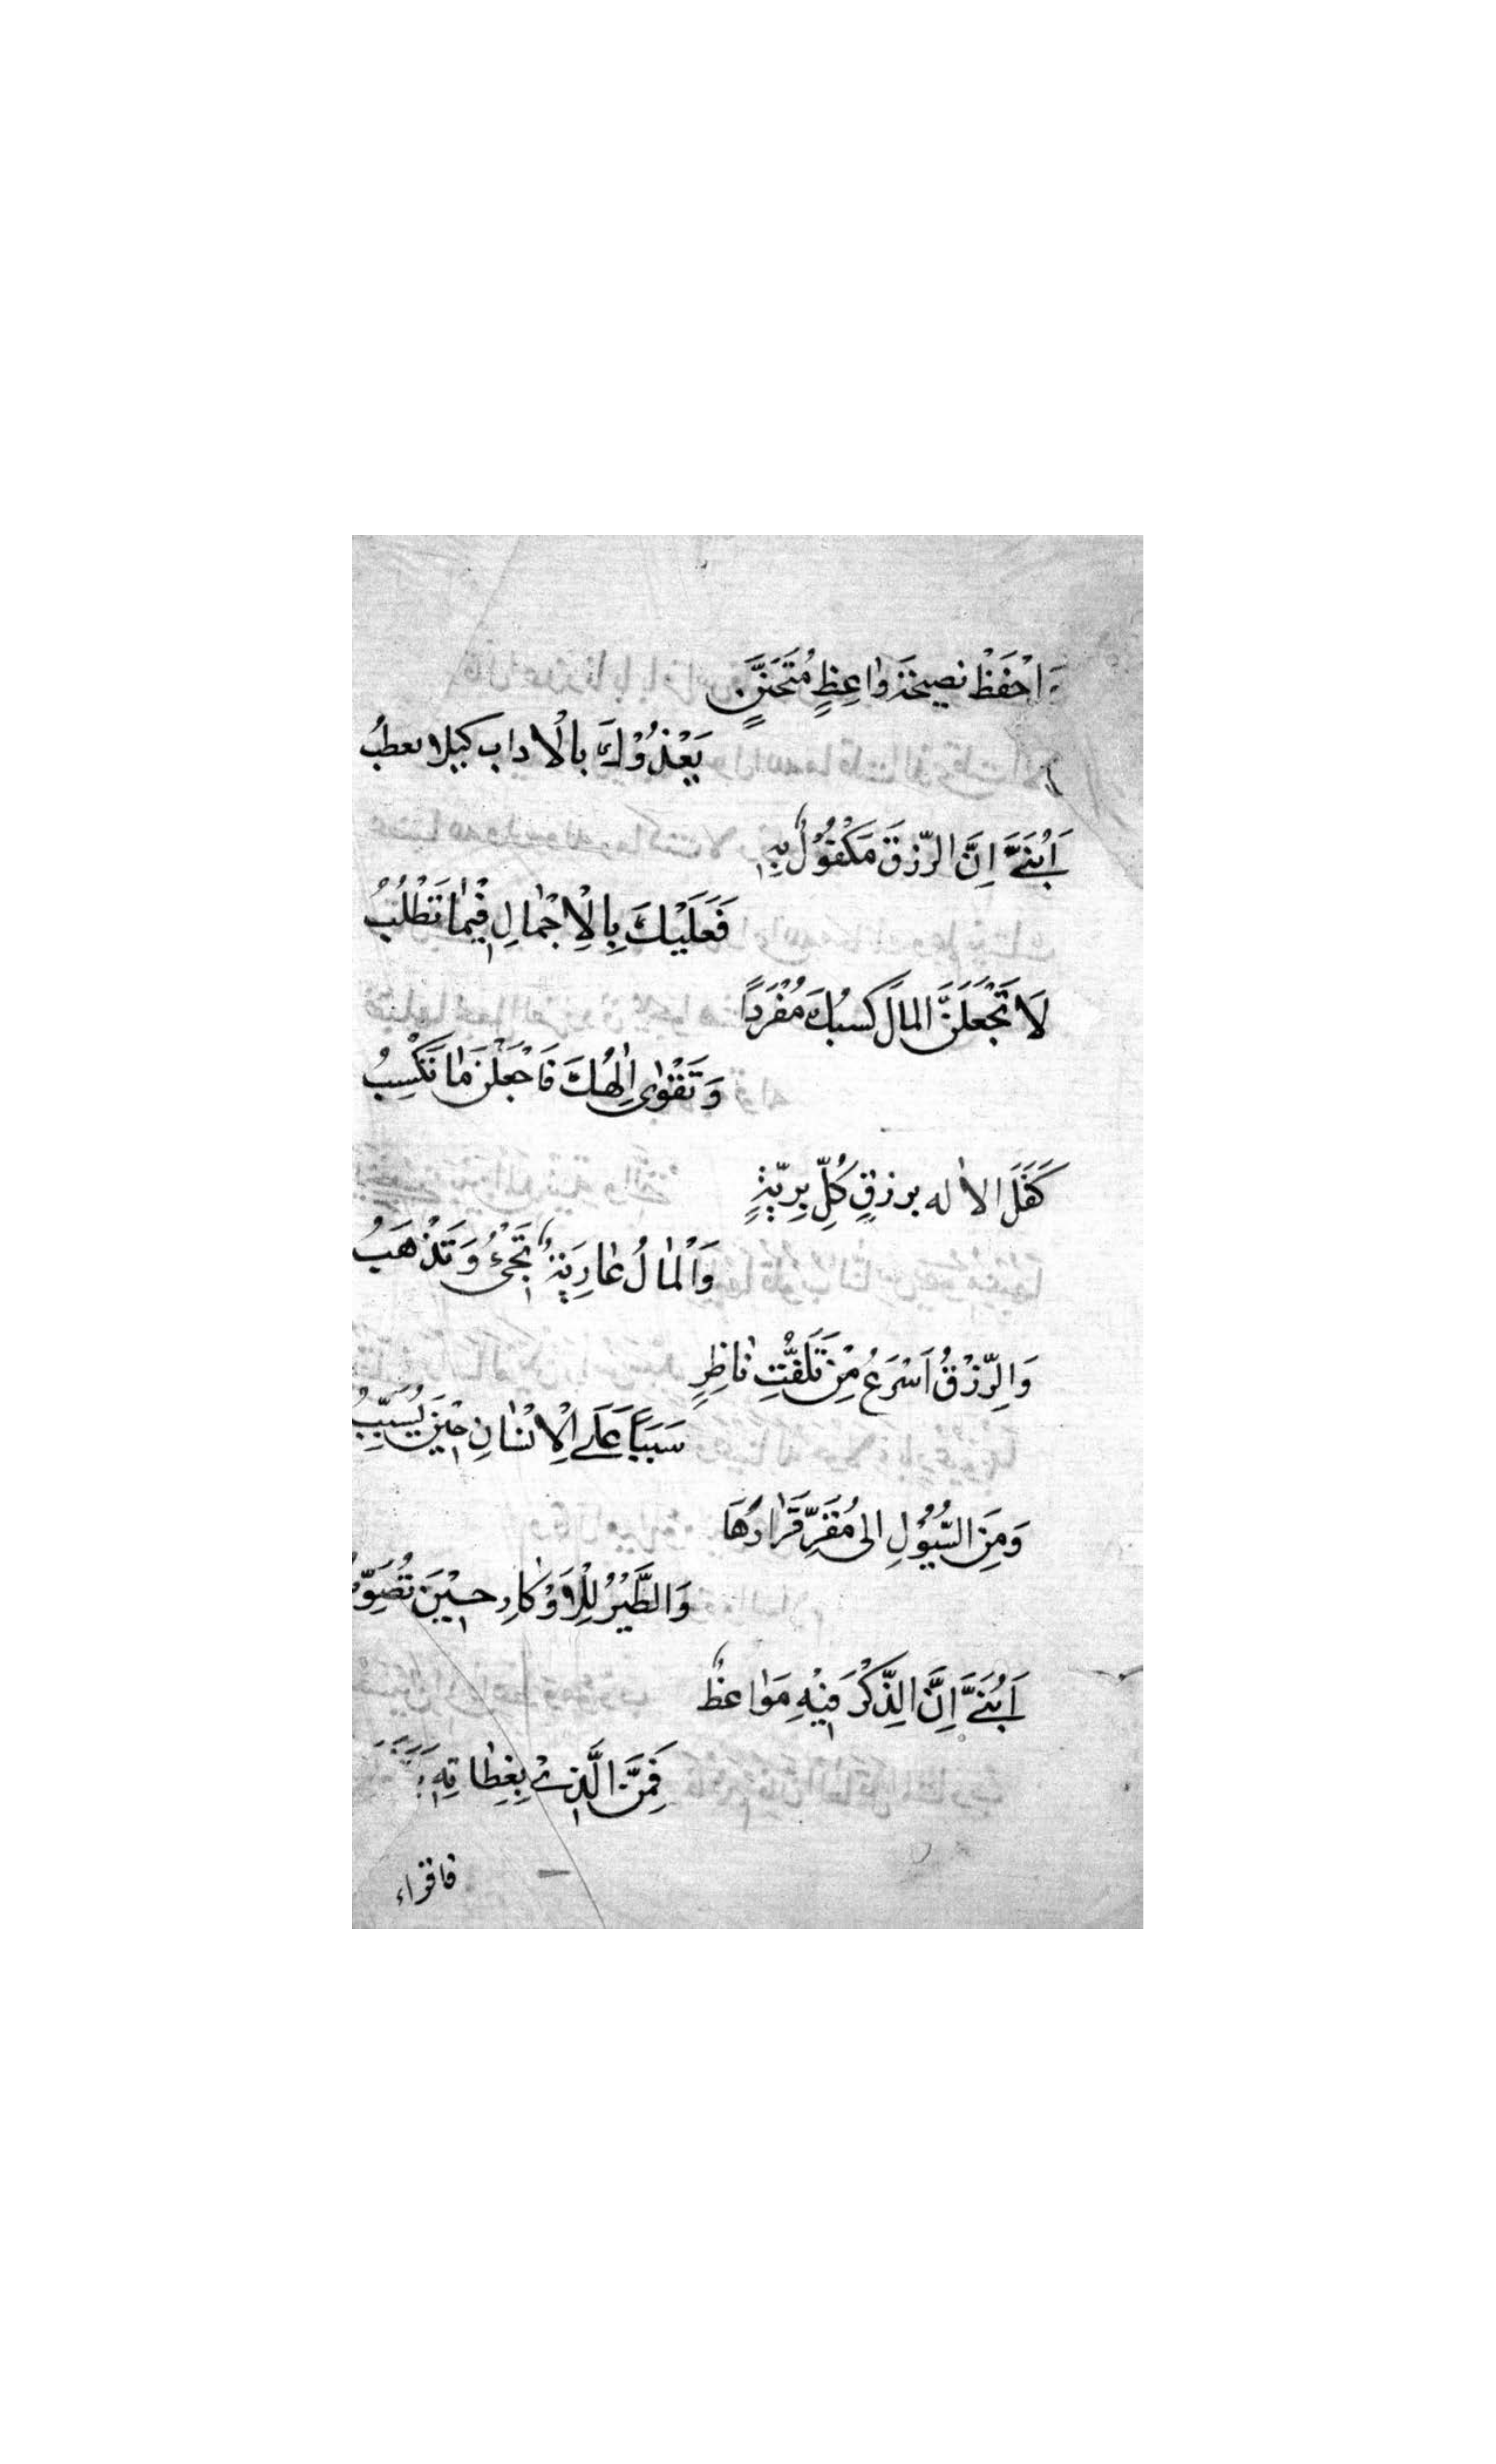 وَاحْفَظْ نصيحَةَ وٰاعِظٍ مُتَحَنِّنٍ
يَغْذُوْكَ بالْاداب كيلا يعطبُ
اَبُنَيَّ اِنَّ الرِّزقَ مَكْفُوْلٌ بِهٖ
فَعَلَيْكَ بِالْاِجْمٰالِ فِيْمٰا تَطْلُبُ
لَا تَجْعَلَنَّ المالَ كسبُكَ مُفْرَدًا
وَتَقْوٰى اِلٰهُكَ فَاجْعَلَنْ مٰا تَكْسِبُ
كَفَلَ الاٰله برزقٍ كُلِّ بِرِيّةٍ
وَالْمٰالُ عٰارِيَةٌ تَجِىْءُ وَتَذْهَبُ
وَالِرِّزْقُ اَسْرَعُ مِنْ تَلَفُّتِ نٰاظِرٍ
سَبَبًا عَلَى الْاِنْسٰانِ حِيْنَ يُسَبِّبُ
وَمِنَ السُّيُوْلِ الى مُقَرِّ قَرٰارِهَا
وَالطَّيْرُ لِلْاَوْكٰارِ حِيْنَ تُصَوِّبُ
اَبُنَيَّ اِنَّ الِذِّكْرَ فِيْهِ مَوٰاعظٌ
فَمَنَّ الَّذِىْ بِعِظٰاتِهٖ
فاقراء